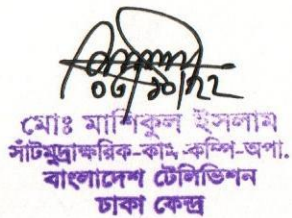 ০৬/১০/২২
মোঃ মাশিকুল ইসলাম
সাঁটমুদ্রাক্ষরিক-কাম-কম্পি-অপা.
বাংলাদেশ টেলিভিশন
ঢাকা কেন্দ্র